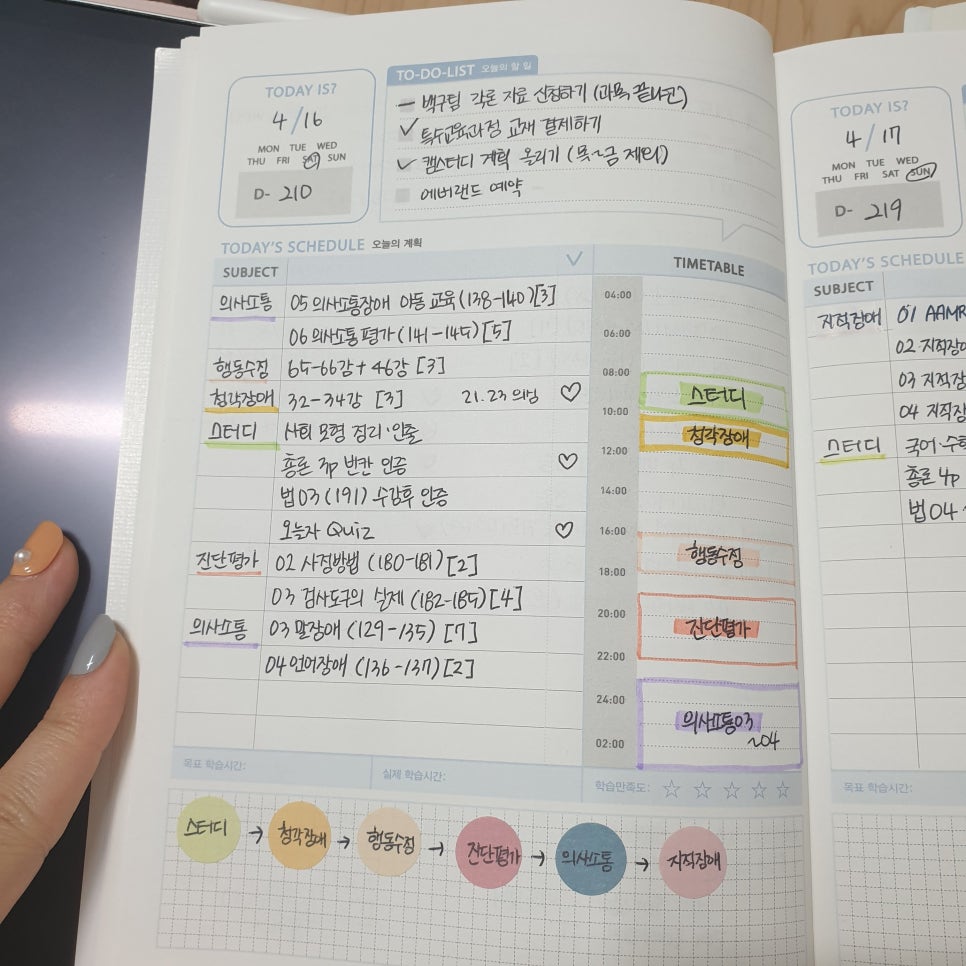 TODAY IS?
4/16
MON TUE WED
THU FRI SAT SUN
D- 210
TO-DO-LIST 오늘의 할 일
백구팀 각론 자료 신청하기 (과목 끝나면)
특수교육과정 교재 결제하기
캠스터디 계획 올리기 (목~금 제외)
에버랜드 예약
TODAY'S SCHEDULE 오늘의 계획
SUBJECT
의사소통 05 의사소통장애 아동 교육 (138-140) [3]
06 의사소통 평가 (141-145) [5]
행동수정 65-66강 + 46강 [3]
청각장애 32-34강 [3] 21.23 의님 ♡
스터디 사회 모형 정리·인출
총론 3p 반칸 인증 ♡
법 03 (191) 수강후 인증
오늘자 Quiz ♡
진단평가 02 사정방법 (180-181) [2]
03 검사도구의 실제 (182-185) [4]
의사소통 03 말장애 (129-135) [7]
04 언어장애 (136-137) [2]
TIMETABLE
04:00
06:00
08:00
스터디
10:00
청각장애
12:00
14:00
16:00
행동수정
18:00
20:00
진단평가
22:00
24:00
의사소통03
~04
02:00
목표 학습시간:
실제 학습시간:
학습만족도: ☆ ☆ ☆ ☆ ☆
스터디 → 청각장애 → 행동수정 → 진단평가 → 의사소통 → 지적장애
TODAY IS?
4/17
MON TUE WED
THU FRI SAT SUN
D- 219
TODAY'S SCHEDULE
SUBJECT
지적장애 01 AAMR
02 지적장애
03 지적장
04 지적장
스터디 국어·수학
총론 4p
법 04
목표 학습시간: